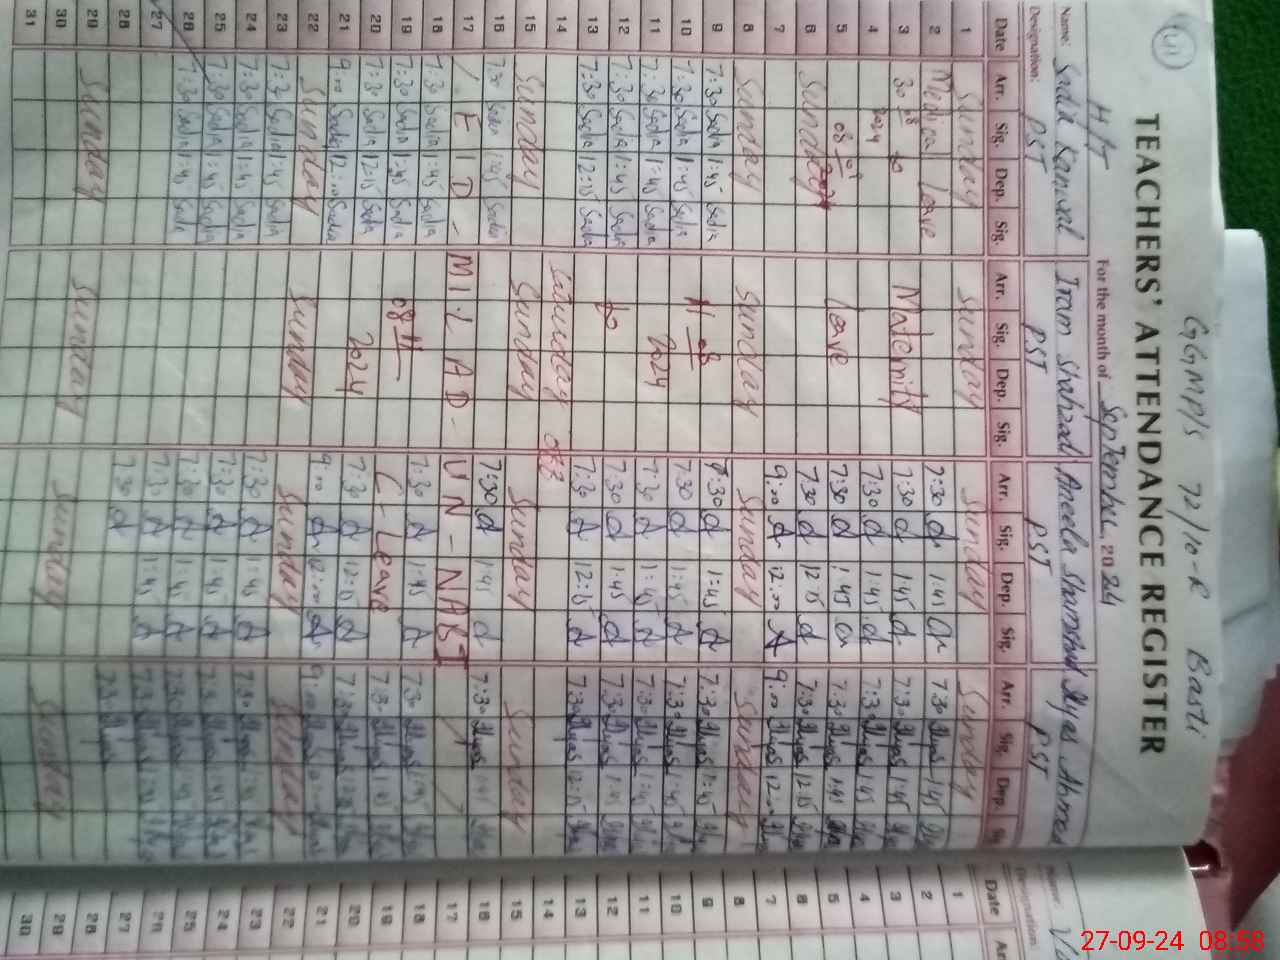 GGMP/S 72/10-R Basti
TEACHERS' ATTENDANCE REGISTER
H/T
For the month of September, 2024
Name: Sadia Kanwal Iram Shahzadi Aneela Shamshad Ilyas Ahmed
Designation: PST PST PST PST
Date Arr. Sig. Dep. Sig. Arr. Sig. Dep. Sig. Arr. Sig. Dep. Sig. Arr. Sig. Dep.
1 Sunday Sunday Sunday Sunday
2 Medical Leave 7:30 1:45 7:30 Ilyas 1:45
3 30 08 to Maternity 7:30 1:45 7:30 Ilyas 1:45
4 2024 7:30 1:45 7:30 Ilyas 1:45
5 08 09 Leave 7:30 1:45 7:30 Ilyas 1:45
6 Sunday 2024 7:30 12:15 7:30 Ilyas 12:15
7 9:00 12:00 9:00 Ilyas 12:00
8 Sunday Sunday Sunday Sunday
9 7:30 Sadia 1:45 Sadia 11 08 7:30 1:45 7:30 Ilyas 1:45
10 7:30 Sadia 1:45 Sadia 2024 7:30 1:45 7:30 Ilyas 1:45
11 7:30 Sadia 1:45 Sadia 7:30 1:45 7:30 Ilyas 1:45
12 7:30 Sadia 1:45 Sadia to 7:30 1:45 7:30 Ilyas 1:45
13 7:30 Sadia 12:15 Sadia 7:30 12:15 7:30 Ilyas 12:15
14
15 Sunday Sunday Sunday Sunday
16 7:30 Sadia 1:45 Sadia 7:30 1:45 7:30 Ilyas 1:45
17 / E I D - M I L A D - U N - N A B I
18 7:30 Sadia 1:45 Sadia 7:30 1:45 7:30 Ilyas 1:45
19 7:30 Sadia 1:45 Sadia 08 11 C - Leave 7:30 Ilyas 1:45
20 7:30 Sadia 12:15 Sadia 2024 7:30 12:15 7:30 Ilyas 12:15
21 9:00 Sadia 12:00 Sadia 9:00 12:00 9:00 Ilyas
22 Sunday Sunday Sunday Sunday
23 7:30 Sadia 1:45 Sadia 7:30 1:45 7:30 Ilyas 1:45
24 7:30 Sadia 1:45 Sadia 7:30 1:45 7:30 Ilyas 1:45
25 7:30 Sadia 1:45 Sadia 7:30 1:45 7:30 Ilyas 1:45
26 7:30 Sadia 1:45 Sadia 7:30 1:45 7:30 Ilyas 1:45
27 7:30 7:30 Ilyas
28
29 Sunday Sunday Sunday Sunday
30
31
Name:
Designation:
Date
1
2
3
4
5
6
7
8
9
10
11
12
13
14
15
16
17
18
19
20
21
22
23
24
25
26
27
28
29
30
27-09-24 08:58